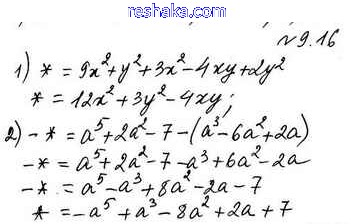 reshaka.com
№9.16
1) * = 9x²+y²+3x²-4xy+2y²
* = 12x²+3y²-4xy;
2) -* = a⁵+2a²-7-(a³-6a²+2a)
-* = a⁵+2a²-7-a³+6a²-2a
-* = a⁵-a³+8a²-2a-7
* = -a⁵+a³-8a²+2a+7